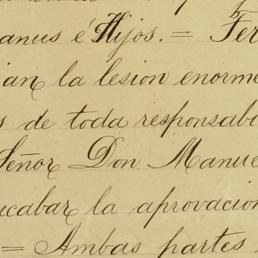 anus é Hijos. = Fer
ian la lesion enorme
s de toda responsabi
Señor Don Manue
ecabar la aprovacion
= Ambas partes